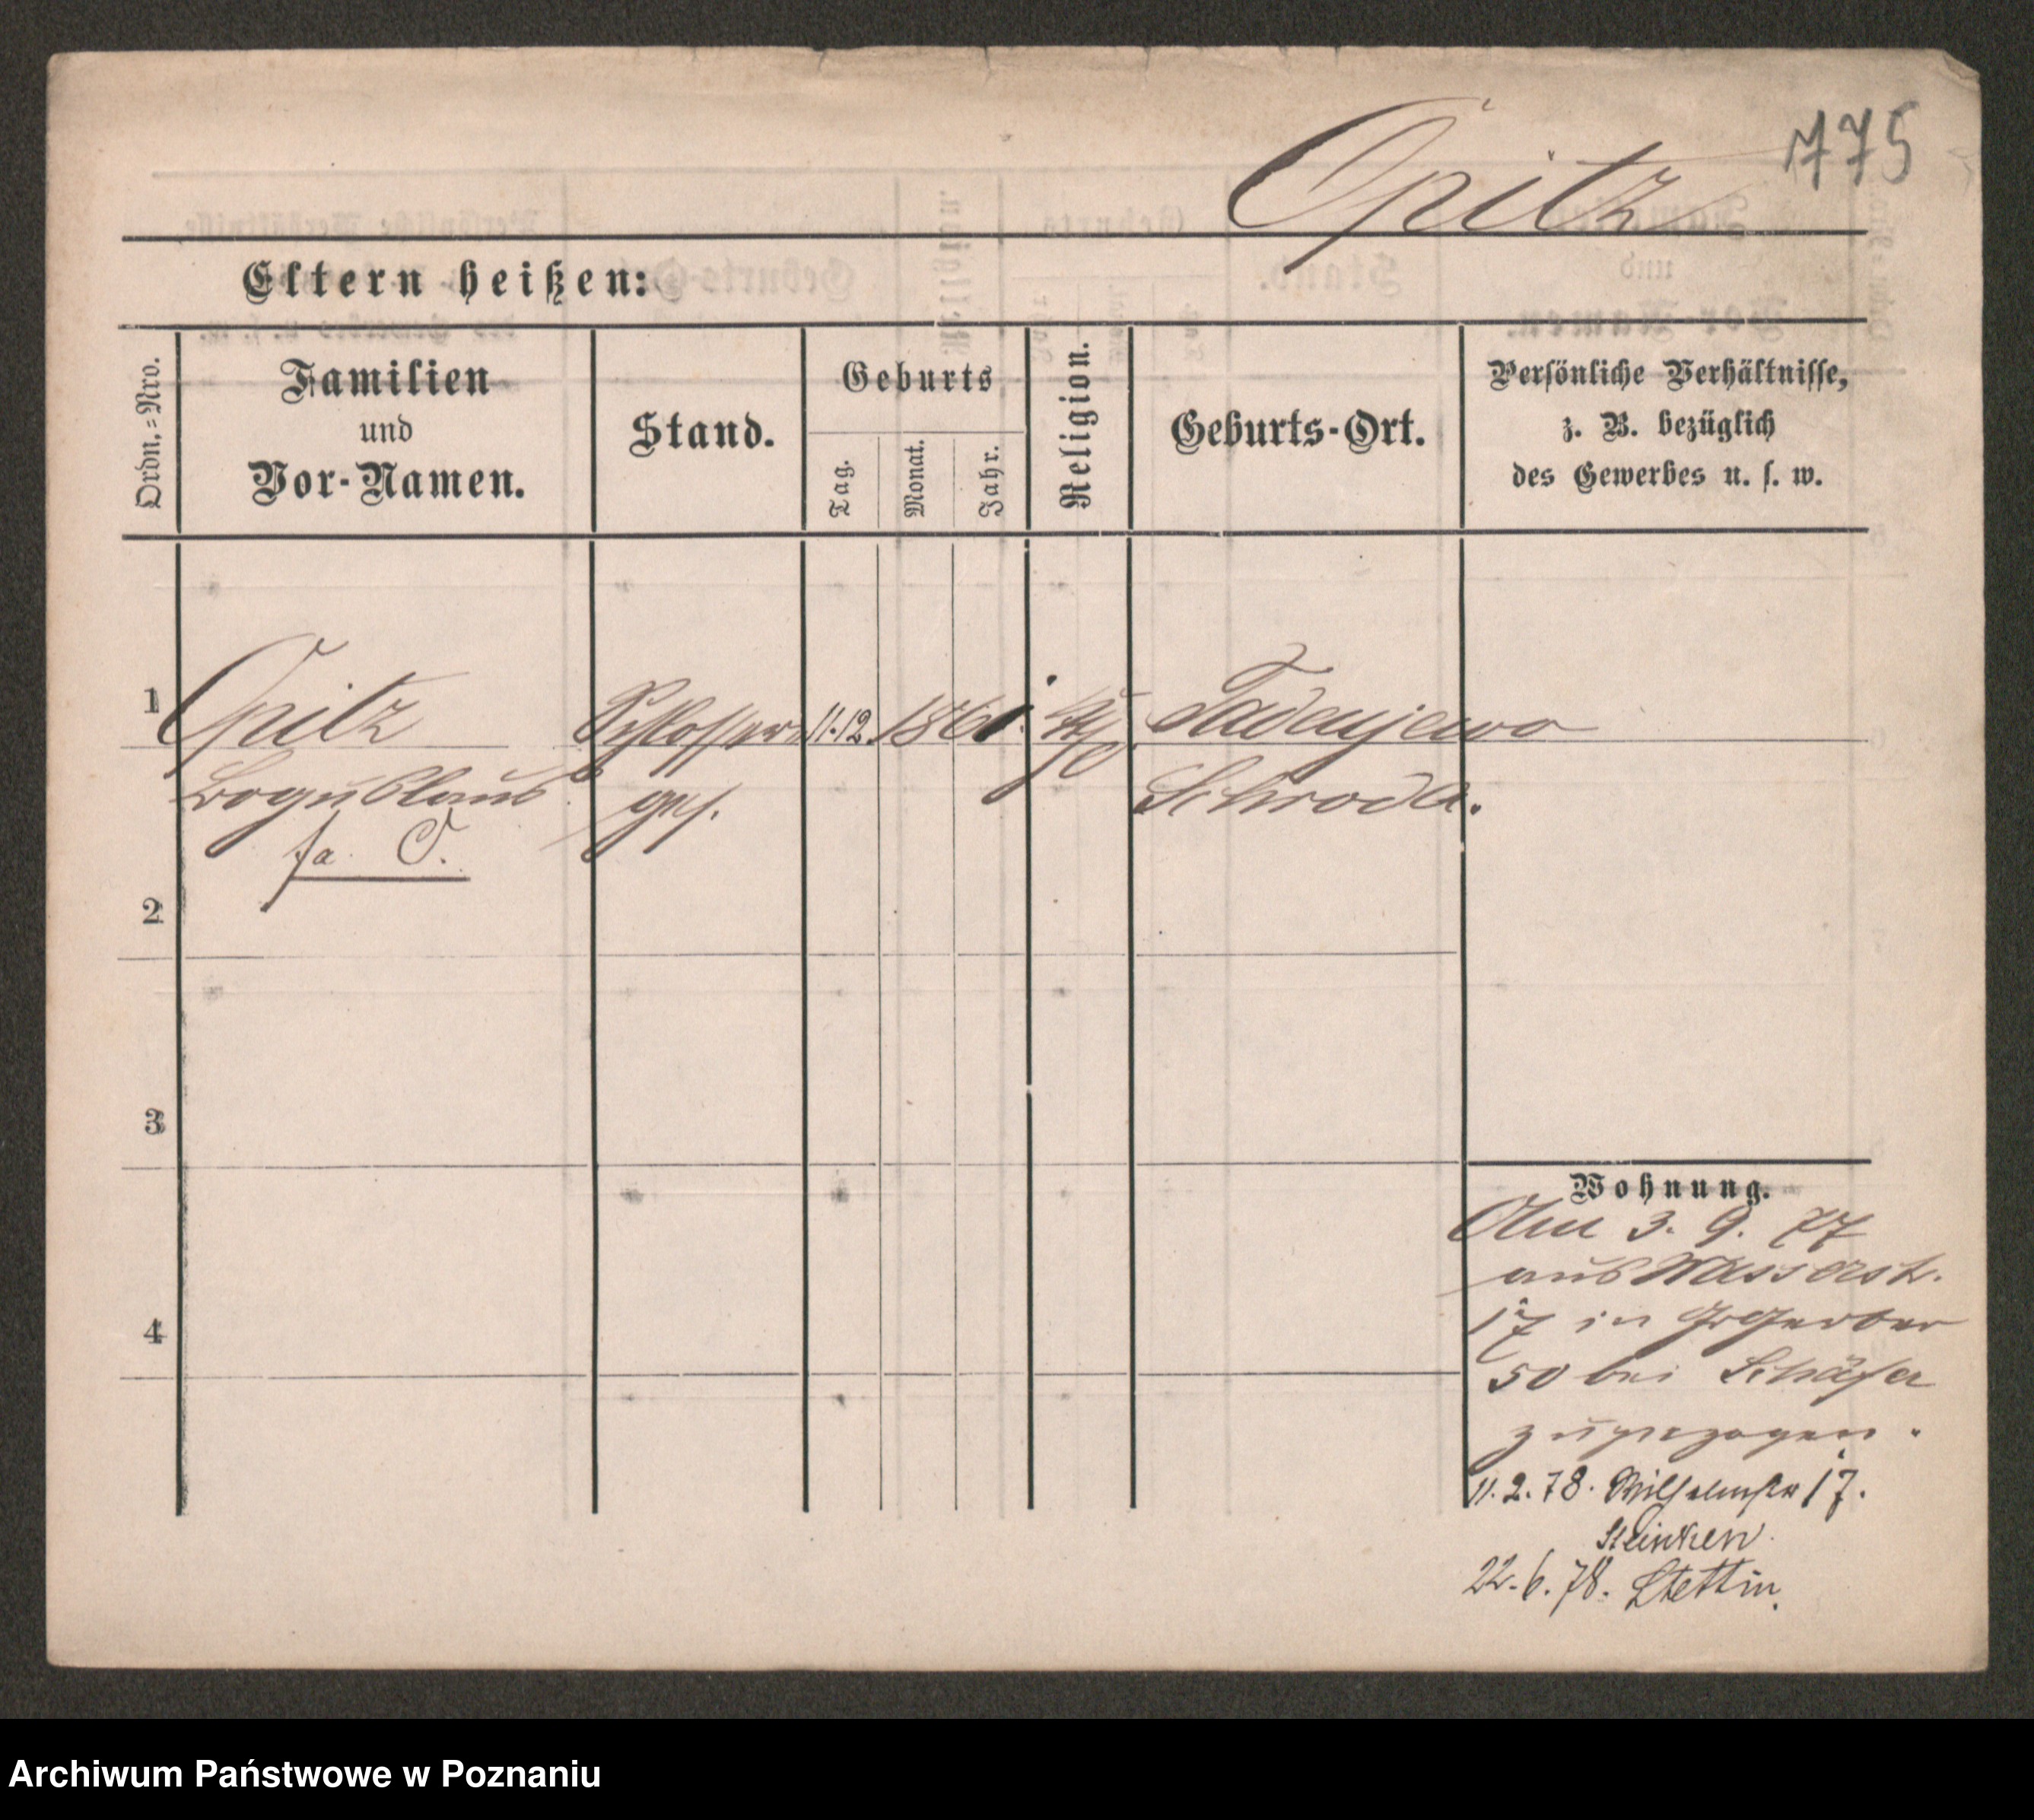 775
Opitz
Eltern heißen:
Ordn.=Nro.
Familien
und
Vor-Namen.
Stand.
Geburts
Tag.
Monat.
Jahr.
Religion.
Geburts-Ort.
Persönliche Verhältnisse,
z. B. bezüglich
des Gewerbes u. s. w.
1
Opitz Schlosser 11. 12. 1861. Tadeujewo
Boguslaus ges. Schroda.
fa. O.
2
3
4
Wohnung.
Am 3. 9. 77
aus Wasserstr.
17 in Gr Gerber
50 bei Schäfer
zugezogen.
11. 2. 78. Wilhelmstr 17.
22. 6. 78. Stettin.
Archiwum Państwowe w Poznaniu